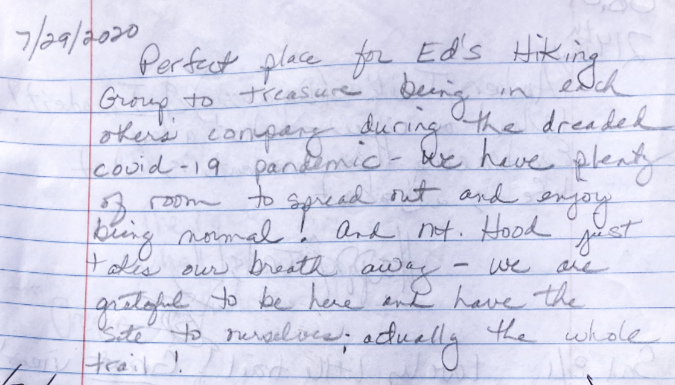 7/29/2020
Perfect place for Ed's Hiking
Group to treasure being in each
others' company during the dreaded
covid-19 pandemic - We have plenty
of room to spread out and enjoy
being normal! And Mt. Hood just
takes our breath away - we are
grateful to be here and have the
site to ourselves; actually the whole
trail!